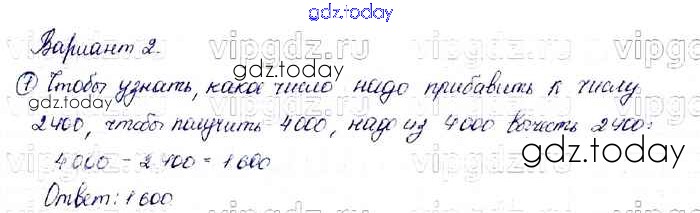 gdz.today
Вариант 2.
vipgdz.ru
gdz.today
① Чтобы узнать, какое число надо прибавить к числу
2400, чтобы получить 4000, надо из 4000 вычесть 2400:
gdz.today
4000 - 2400 = 1600
gdz.today
Ответ: 1600